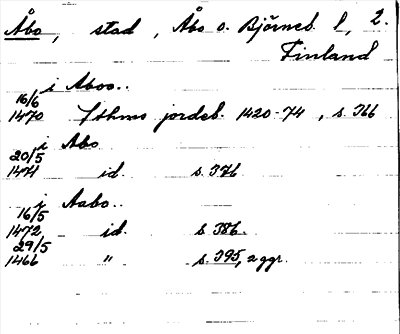 Åbo, stad, Åbo o. Björneb. l, 2.
Finland
i Aboo..
16/6
1470 Sthms jordeb. 1420-74, s. 366
i Abo
20/5
1471 id s. 376
i Aabo..
16/5
1472 id. s. 386.
29/5
1466 " s. 395, 2 ggr.